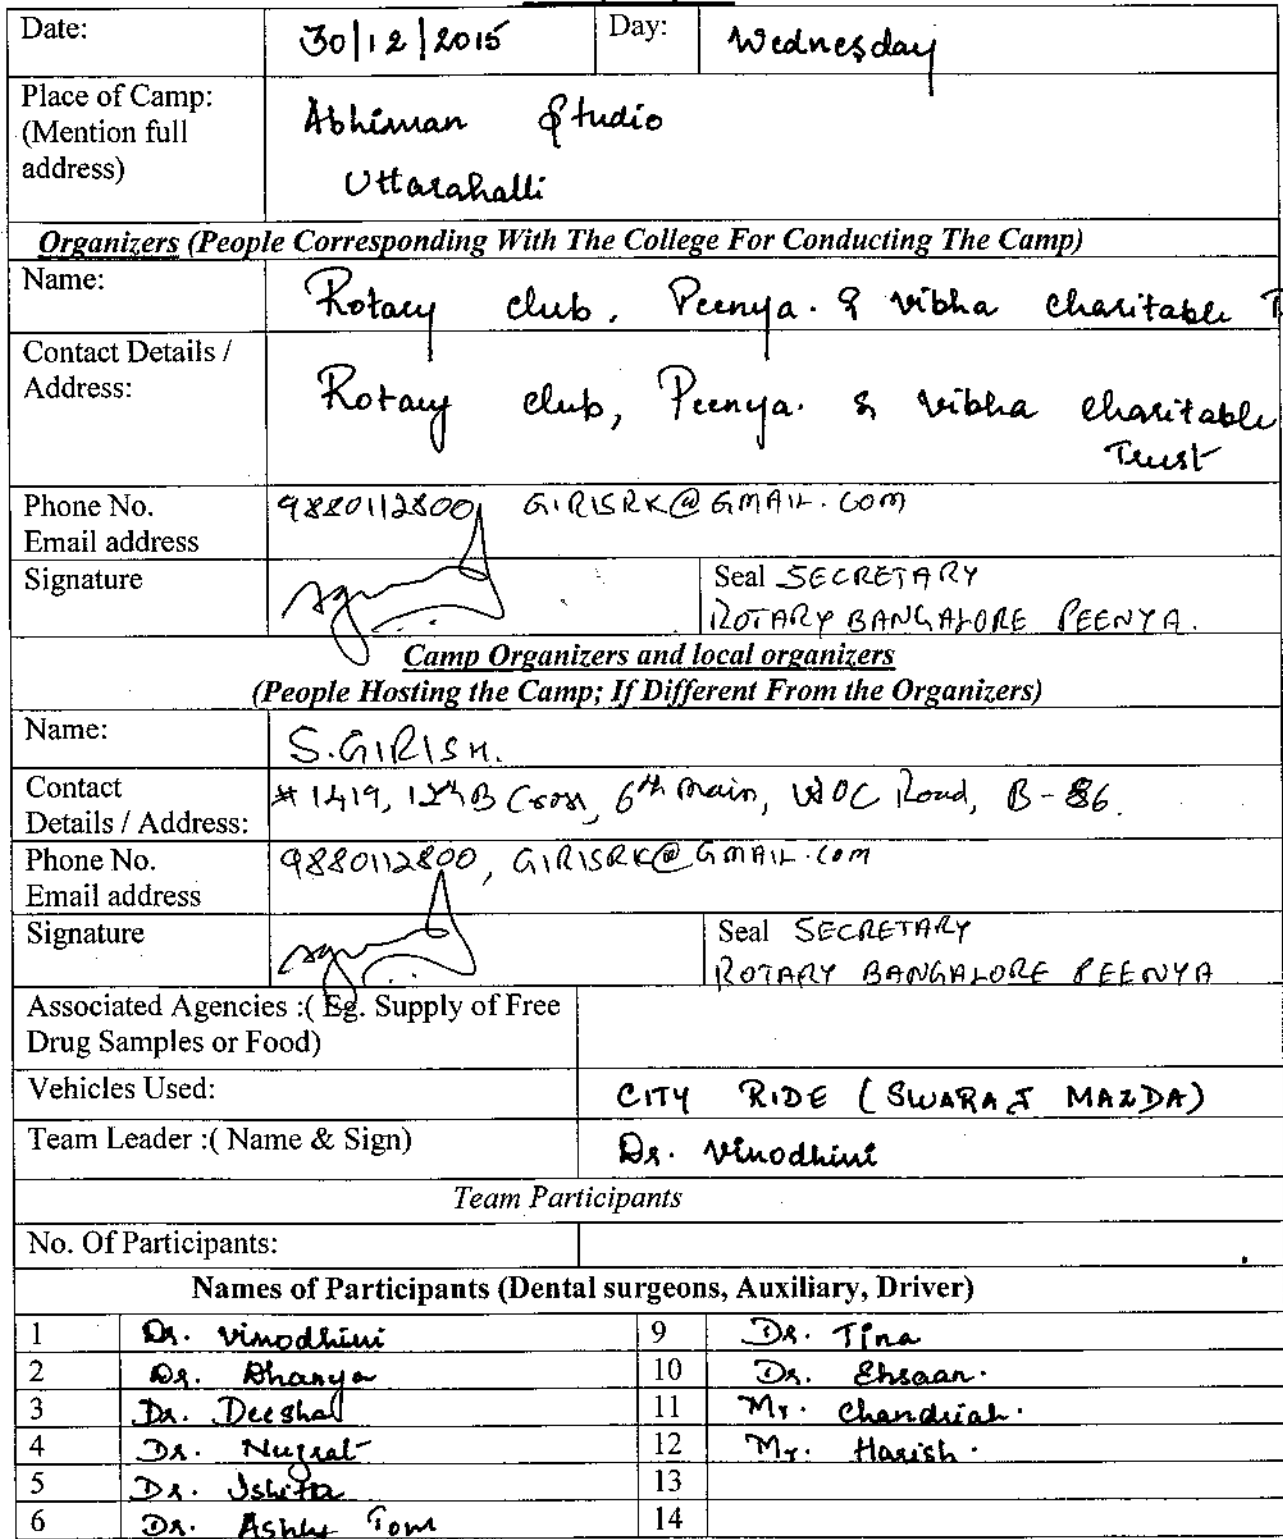 Date: 30/12/2015 Day: Wednesday
Place of Camp: Abhiman Studio
(Mention full
address) Uttarahalli
Organizers (People Corresponding With The College For Conducting The Camp)
Name: Rotary club, Peenya. & vibha charitable T
Contact Details /
Address: Rotary club, Peenya. & vibha charitable
Trust
Phone No. 9880112800, GIRISRK@GMAIL.COM
Email address
Signature Seal SECRETARY
ROTARY BANGALORE PEENYA.
Camp Organizers and local organizers
(People Hosting the Camp; If Different From the Organizers)
Name: S. GIRISH.
Contact #1419, 12th B Cross, 6th main, WOC Road, B-86.
Details / Address:
Phone No. 9880112800, GIRISRK@GMAIL.COM
Email address
Signature Seal SECRETARY
ROTARY BANGALORE PEENYA
Associated Agencies :( Eg. Supply of Free
Drug Samples or Food)
Vehicles Used: CITY RIDE (SWARAJ MAZDA)
Team Leader :( Name & Sign) Dr. Vinodhini
Team Participants
No. Of Participants:
Names of Participants (Dental surgeons, Auxiliary, Driver)
1 Dr. Vinodhini 9 Dr. Tina
2 Dr. Dhanya 10 Dr. Ehsaan.
3 Dr. Deeshal 11 Mr. Chandriah.
4 Dr. Nuzrat 12 Mr. Harish.
5 Dr. Ishita 13
6 Dr. Tom 14